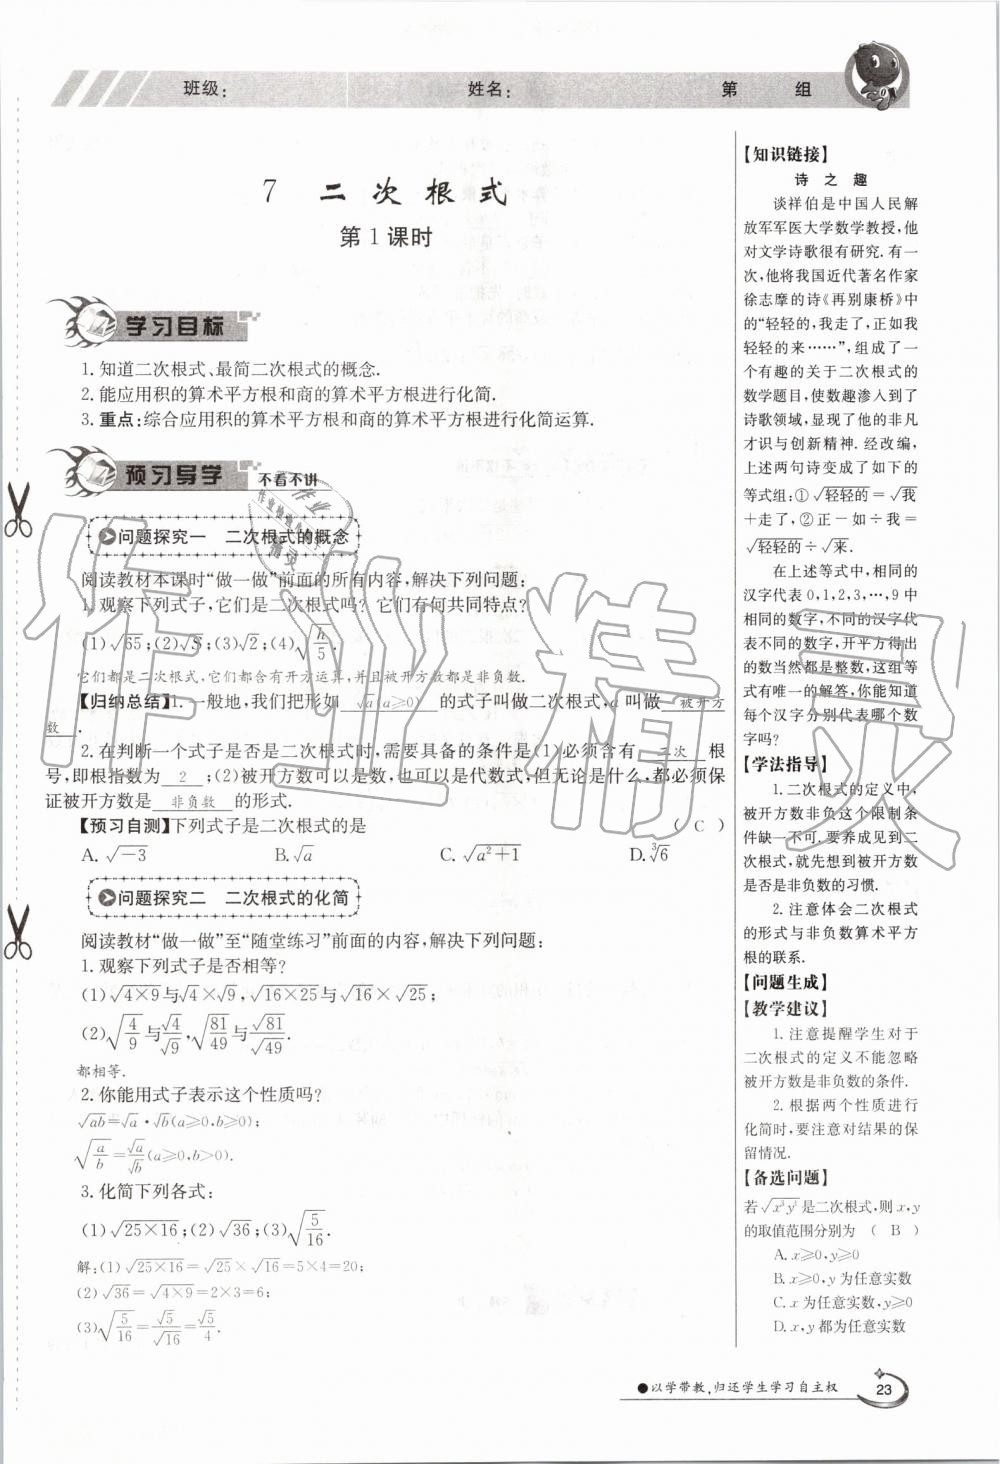 班级:　姓名:　第　组
7 二次根式
第1课时
学习目标
1. 知道二次根式、最简二次根式的概念.
2. 能应用积的算术平方根和商的算术平方根进行化简.
3. 重点:综合应用积的算术平方根和商的算术平方根进行化简运算.
预习导学 不看不讲
问题探究一　二次根式的概念
阅读教材本课时“做一做”前面的所有内容,解决下列问题:
1. 观察下列式子,它们是二次根式吗? 它们有何共同特点?
(1)√65;(2)√S;(3)√2;(4)√(h/5).
它们都是二次根式,它们都含有开方运算,并且被开方数都是非负数.
【归纳总结】1. 一般地,我们把形如 √a(a≥0) 的式子叫做二次根式,a叫做 被开方
数 .
2. 在判断一个式子是否是二次根式时,需要具备的条件是(1)必须含有 二次 根
号,即根指数为 2 ;(2)被开方数可以是数,也可以是代数式,但无论是什么,都必须保
证被开方数是 非负数 的形式.
【预习自测】下列式子是二次根式的是 ( C )
A. √-3　B. √a　C. √(a²+1)　D. ∛6
问题探究二　二次根式的化简
阅读教材“做一做”至“随堂练习”前面的内容,解决下列问题:
1. 观察下列式子是否相等?
(1)√(4×9)与√4×√9,√(16×25)与√16×√25;
(2)√(4/9)与√4/√9,√(81/49)与√81/√49.
都相等.
2. 你能用式子表示这个性质吗?
√ab=√a·√b(a≥0,b≥0);
√(a/b)=√a/√b(a≥0,b>0).
3. 化简下列各式:
(1)√(25×16);(2)√36;(3)√(5/16).
解:(1)√(25×16)=√25×√16=5×4=20;
(2)√36=√(4×9)=2×3=6;
(3)√(5/16)=√5/√16=√5/4.
【知识链接】
诗之趣
谈祥伯是中国人民解
放军军医大学数学教授,他
对文学诗歌很有研究. 有一
次,他将我国近代著名作家
徐志摩的诗《再别康桥》中
的“轻轻的,我走了,正如我
轻轻的来……”,组成了一
个有趣的关于二次根式的
数学题目,使数趣渗入到了
诗歌领域,显现了他的非凡
才识与创新精神. 经改编,
上述两句诗变成了如下的
等式组:①√轻轻的=√我
+走了,②正-如÷我=
√轻轻的÷√来.
在上述等式中,相同的
汉字代表0,1,2,3,…,9中
相同的数字,不同的汉字代
表不同的数字,开平方得出
的数当然都是整数,这组等
式有唯一的解答,你能知道
每个汉字分别代表哪个数
字吗?
【学法指导】
1. 二次根式的定义中,
被开方数非负这个限制条
件缺一不可. 要养成见到二
次根式,就先想到被开方数
是否是非负数的习惯.
2. 注意体会二次根式
的形式与非负数算术平方
根的联系.
【问题生成】
【教学建议】
1. 注意提醒学生对于
二次根式的定义不能忽略
被开方数是非负数的条件.
2. 根据两个性质进行
化简时,要注意对结果的保
留情况.
【备选问题】
若√(x³y⁴)是二次根式,则x,y
的取值范围分别为 ( B )
A. x≥0,y≥0
B. x≥0,y为任意实数
C. x为任意实数,y≥0
D. x,y都为任意实数
●以学带教,归还学生学习自主权 23
作业精灵